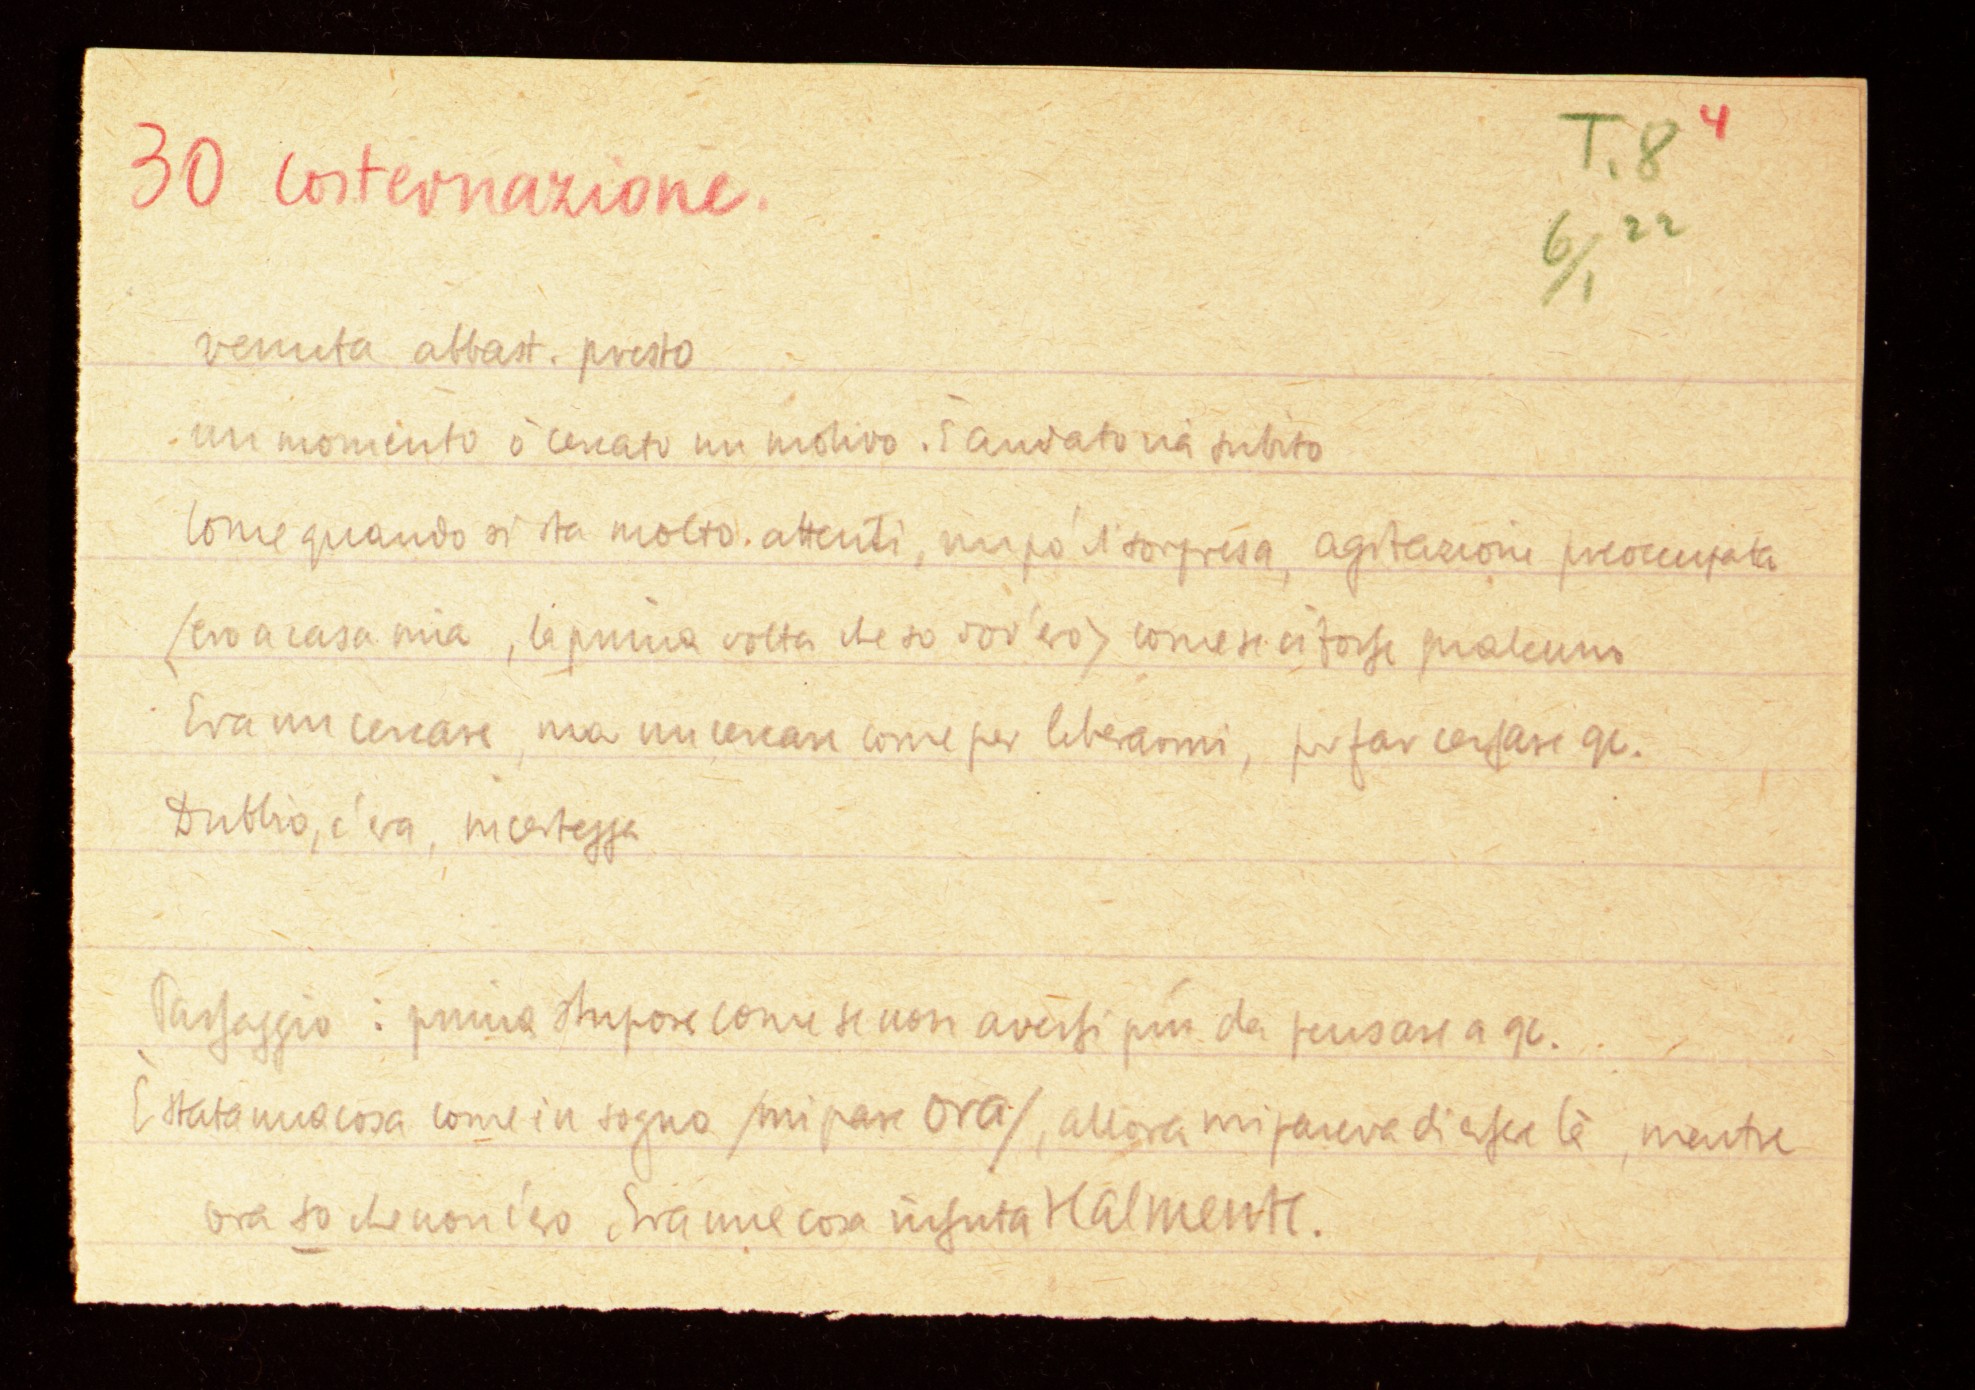 30 costernazione.
T. 8 4
6/1 22
venuta abbast. presto
un momento ò cercato un motivo. È andato via subito
come quando si sta molto attenti, un po' d'sorpresa, agitazione preoccupata
(ero a casa mia, la prima volta che so dov'ero) come se ci fosse qualcuno
Era un cercare, ma un cercare come per liberarmi, per far cessare qc.
Dubbio, c'era, incertezza
Passaggio: prima stupore come se non avessi più da pensare a qc.
È stata una cosa come in sogno /mi pare ora/, allora mi pareva di essere là, mentre
ora so che non c'ero. Era una cosa vissuta realmente.